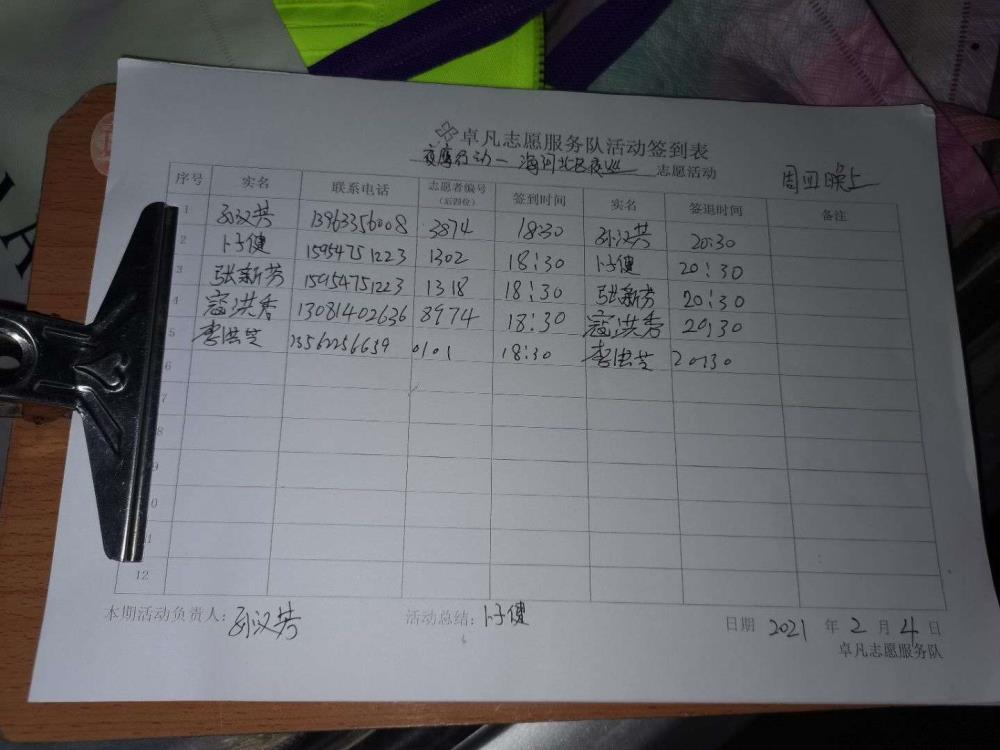 卓凡志愿服务队活动签到表
夜鹰行动一海河北区夜巡 志愿活动 周四晚上
序号 实名 联系电话 志愿者编号(后四位) 签到时间 实名 签退时间 备注
1 孙汉芳 13963356008 3874 18:30 孙汉芳 20:30
2 卜健 15954751223 1302 18:30 卜健 20:30
3 张新芳 15954751223 1318 18:30 张新芳 20:30
4 寇洪秀 13081402636 8974 18:30 寇洪秀 20:30
5 李洪芝 13562256659 0101 18:30 李洪芝 20:30
6
7
8
9
10
11
12
本期活动负责人: 孙汉芳 活动总结: 卜健 日期 2021 年 2 月 4 日
卓凡志愿服务队